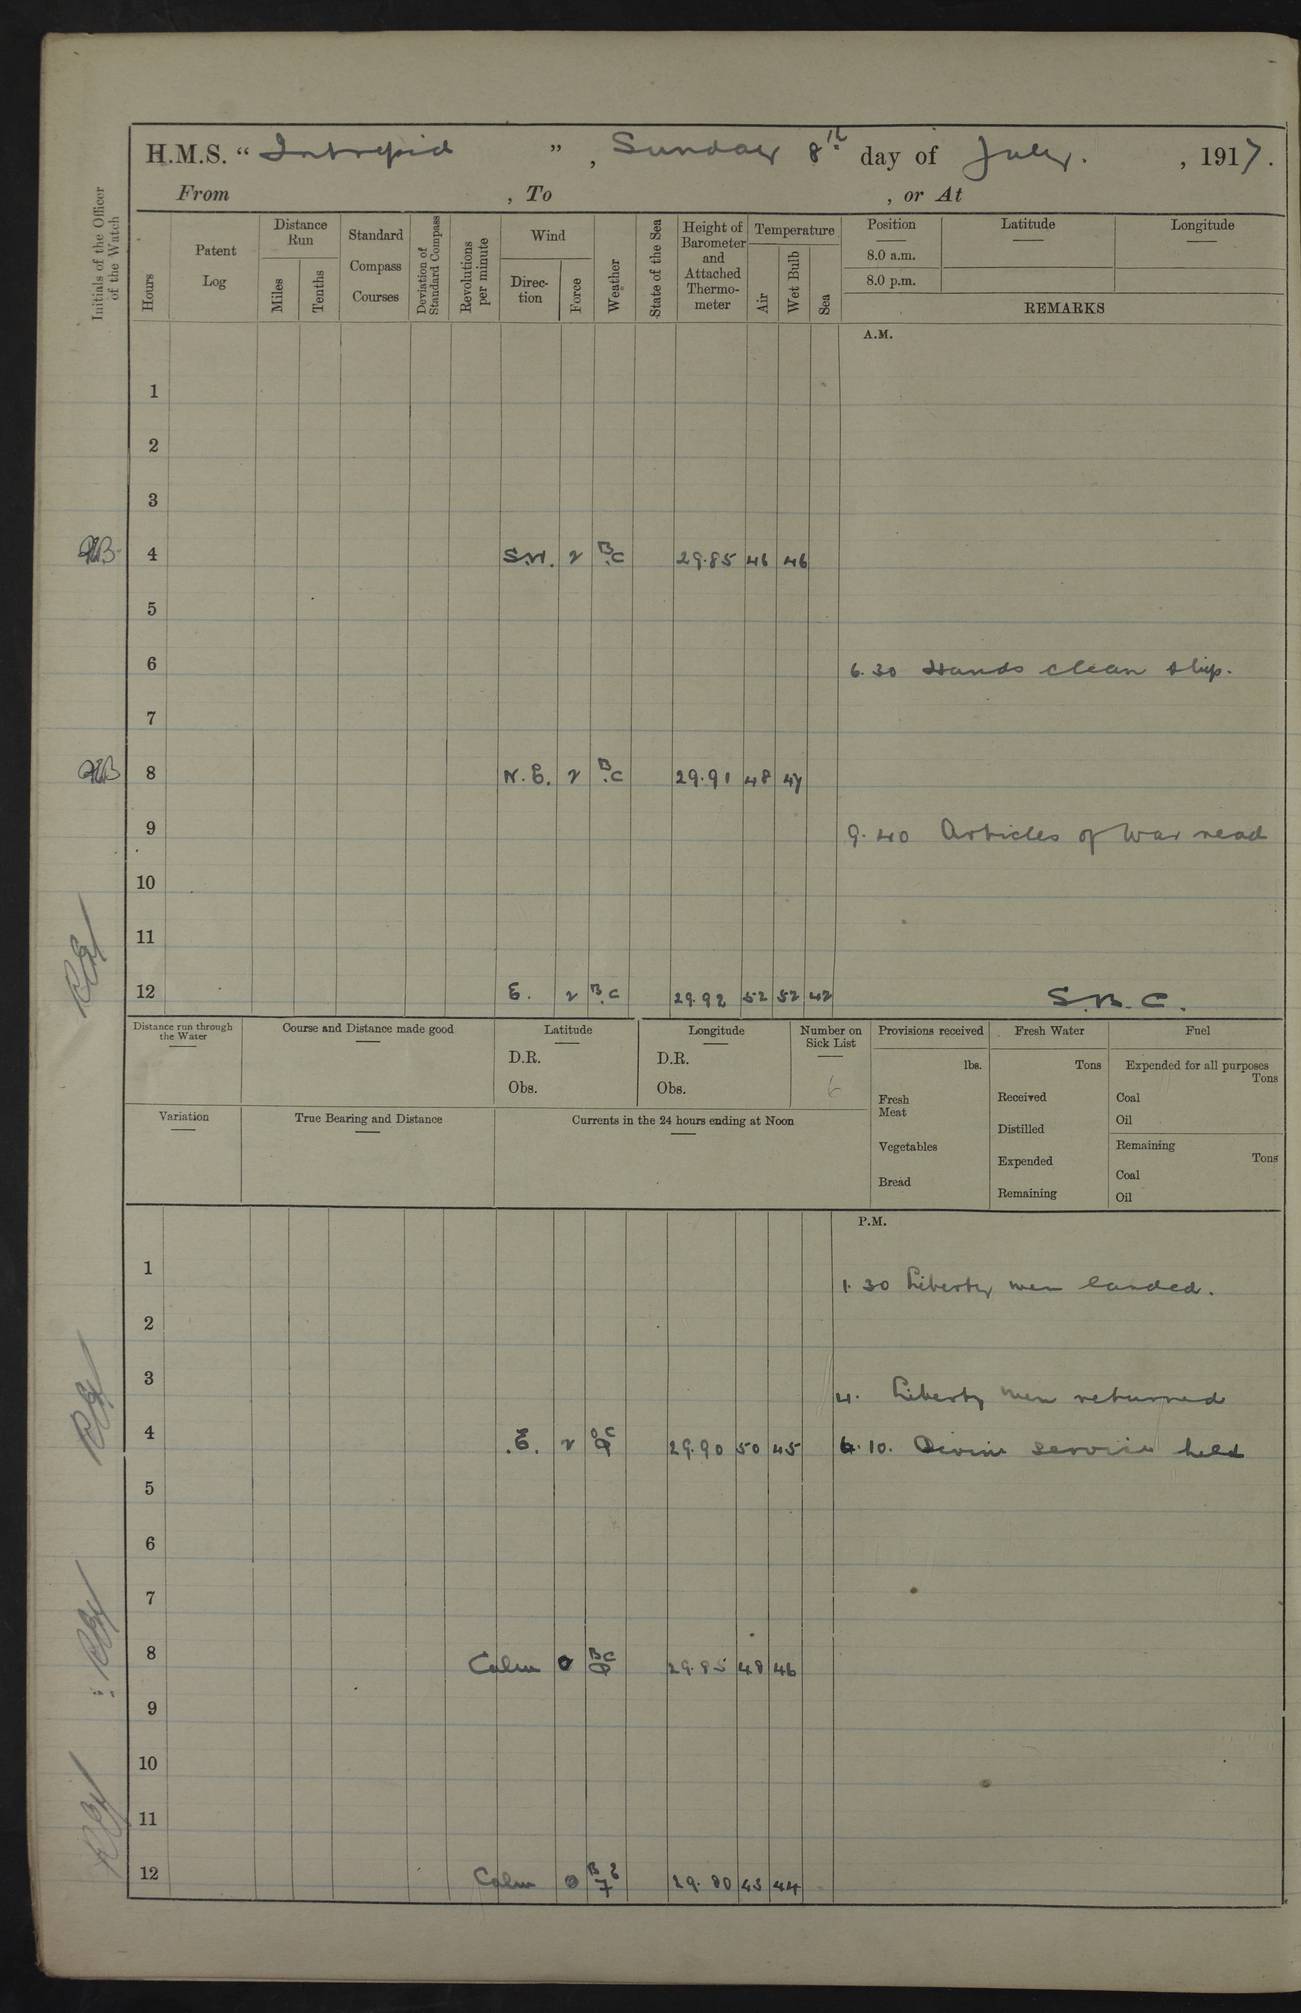 H.M.S. “ Intrepid ” , Sunday 8th day of July. , 1917.
From , To , or At
Initials of the Officer of the Watch
Hours
Patent Log
Distance Run
Miles
Tenths
Standard Compass Courses
Deviation of Standard Compass
Revolutions per minute
Wind
Direction
Force
Weather
State of the Sea
Height of Barometer and Attached Thermometer
Temperature
Air
Wet Bulb
Sea
Position
8.0 a.m.
8.0 p.m.
Latitude
Longitude
REMARKS
A.M.
1
2
3
4 2 B.C 29.85 46 46
5
6 6.30 Hands clean ship.
7
8 N.E. 2 B.C 29.91 48 47
9 9.40 Articles of War read
10
11
12 E. 2 B.C 29.92 52 52 42 S.B.C.
Distance run through the Water
Course and Distance made good
Latitude
D.R.
Obs.
Longitude
D.R.
Obs.
Number on Sick List
6
Provisions received
lbs.
Fresh Meat
Vegetables
Bread
Fresh Water
Tons
Received
Distilled
Expended
Remaining
Fuel
Expended for all purposes
Tons
Coal
Oil
Remaining
Tons
Coal
Oil
Variation
True Bearing and Distance
Currents in the 24 hours ending at Noon
P.M.
1 1.30 Liberty men landed.
2
3 4. Liberty men returned
4 E. 2 29.90 50 45 6.10. Divine service held
5
6
7
8 Calm 0 BC 29.85 48 46
9
10
11
12 Calm 0 29.80 45 44